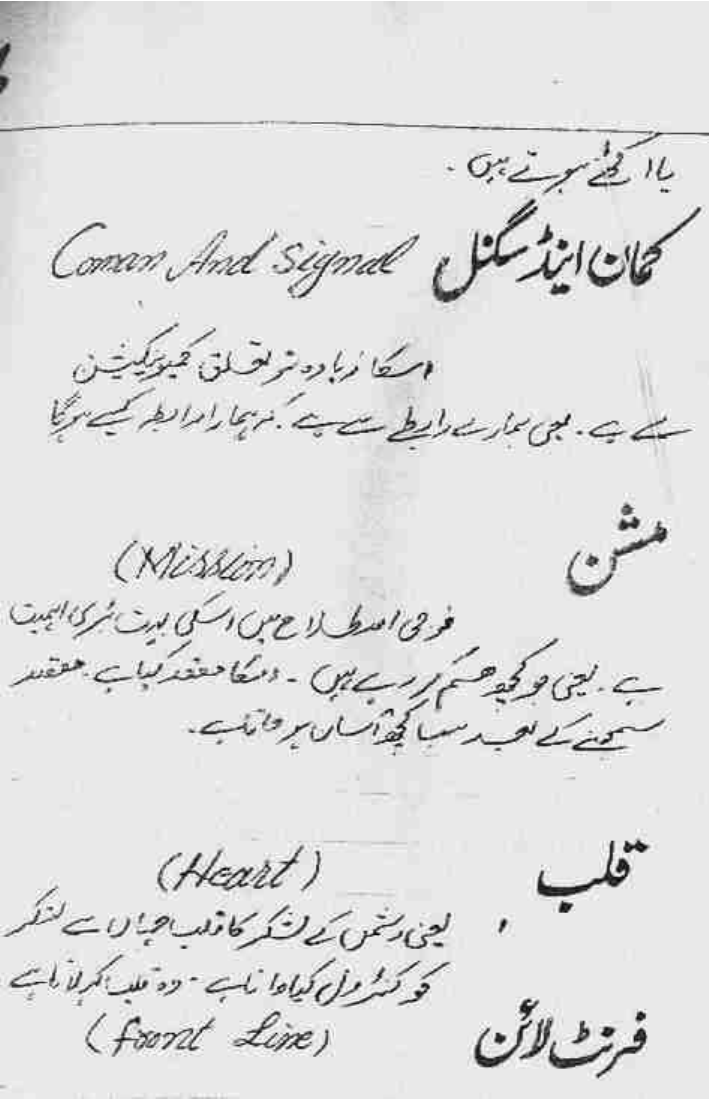 یا اکٹھے ہوتے ہیں۔
کمان اینڈ سگنل Coman And Signal
اسکا زیادہ تر تعلق کمیونیکیشن
سے ہے۔ یعنی ہمارے رابطے سے ہے۔ کہ ہمارا رابطہ کیسے ہوگا
مشن
(Mission)
فوجی اصطلاح میں اسکی بہت بڑی اہمیت
ہے۔ یعنی جو کچھ ہم کر رہے ہیں۔ اسکا مقصد کیا ہے۔ مقصد
سمجھنے کے بعد سب کچھ آسان ہو جاتا ہے۔
قلب
(Heart)
یعنی دشمن کے لشکر کا قلب جہاں سے لشکر
کو کنٹرول کیا جاتا ہے۔ وہ قلب کہلاتا ہے
فرنٹ لائن (front Line)